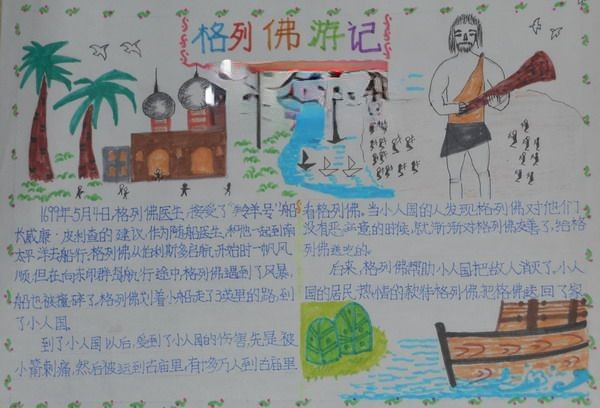 格列佛游记
1699年5月4日,格列佛医生,接受了“羚羊号”船
长威廉·皮利查的建议,作为随船医生,和他一起到南
太平洋去船行,格列佛从伯利斯多启航,开始时一帆风
顺,但在向东印群岛航行途中,格列佛遇到了风暴,
船也被礁碎了。格列佛划着小船走了3英里的路,到
了小人国。
到了小人国以后,受到了小人国的伤害,先是被
小箭刺痛,然后被运到古庙里,有10多万人到古庙里
看格列佛。当小人国的人发现格列佛对他们
没有恶意的时候,就渐渐对格列佛友善了,给格
列佛送吃的。
后来,格列佛帮助小人国把敌人消灭了。小人
国的居民热情的款待格列佛,把格佛送回了家